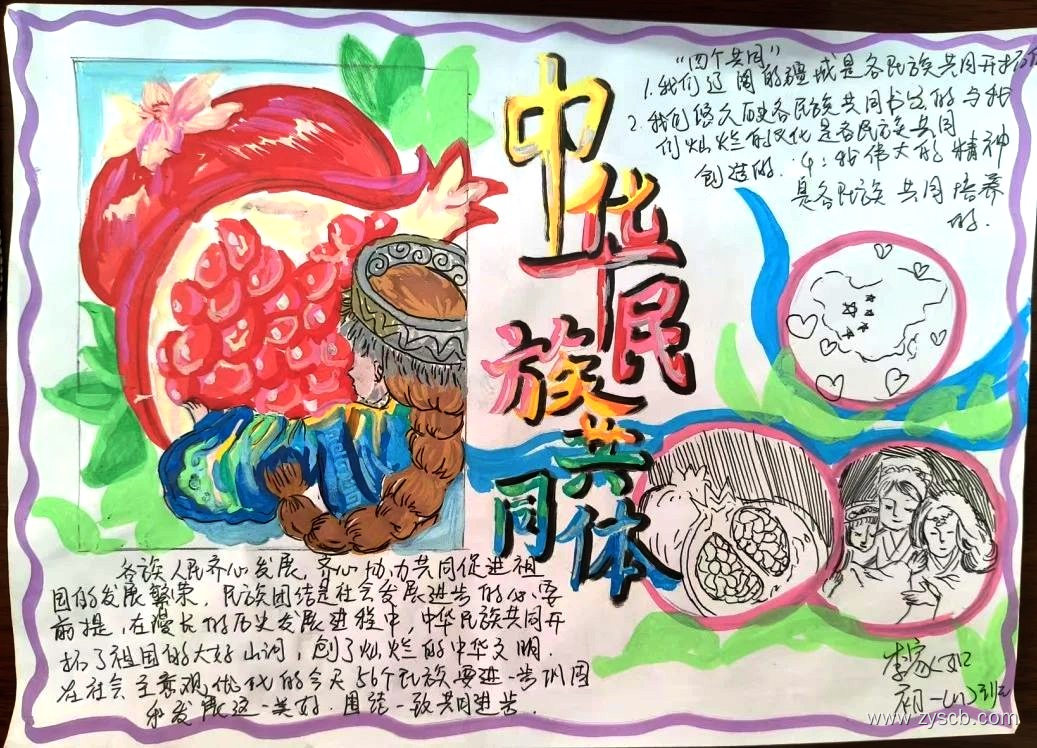 中华民族共同体
"四个共同"
1.我们辽阔的疆域是各民族共同开拓
2.我们悠久历史各民族共同书写的 与我
们灿烂的文化是各民族共同
创造的. 4:我伟大的精神
是各民族共同培养
的.
各族人民齐心发展,齐心协力共同促进祖
国的发展繁荣.民族团结是社会发展进步的必要
前提,在漫长的历史发展进程中,中华民族共同开
拓了祖国的大好山河,创了灿烂的中华文明.
在社会主义现代的今天56个民族要进一步巩固
和发展这一美好.团结一致共同进步.
李家
初一(1)班
www.zyscb.com